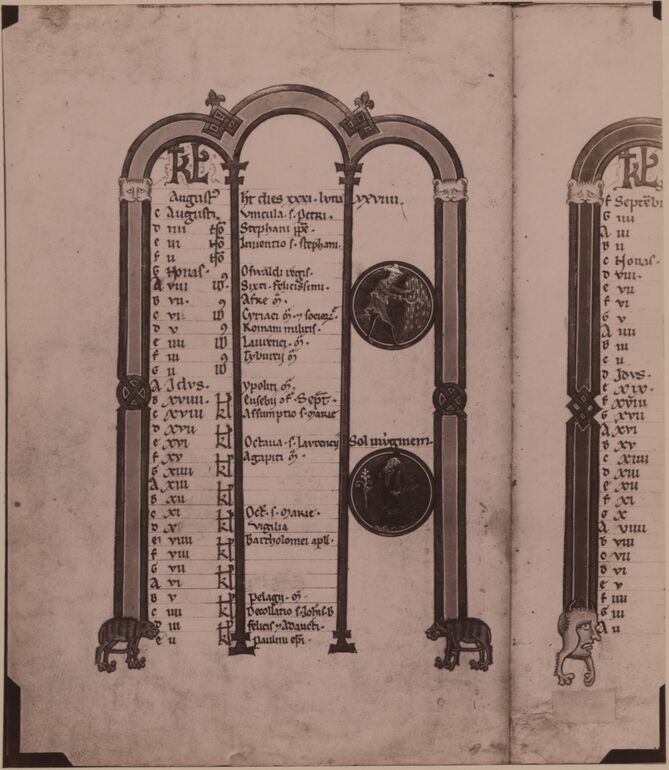 KL
August
ht dies xxxi. luna xxviiii.
c Augusti. Vincula s. Petri.
d iiii Stephani ppe.
e iii Inuentio s. stephani.
f ii
g Nonas. Oswaldi regis.
A viii Sixti. felicissimi.
b vii. Afre m̄.
c vi Cyriaci m̄. 7 socior
d v Romani militis.
e iiii Laurenci. m̄.
f iii Tyburcij m̄
g ii
A Idus. ypoliti m̄.
b xviiii. Eusebij
c xviii Assumptio s. marie
d xvii
e xvi Octaua. s. Laurencij Sol in uirginem
f xv Agapiti m̄.
g xiiii
A xiii
b xii
c xi Oct. s. marie.
d x vigilia
e viiii Bartholomei apli.
f viii
g vii
A vi
b v Pelagij. m̄.
c iiii Decollatio s. Johis. b
d iii felicis 7 Adaucti.
e ii Paulini epi.
KL
f Septēbr
g iiii
A iii
b ii
c Nonas.
d viii.
e vii
f vi
g v
A iiii
b iii
c ii
d Idus.
e xix.
f xviii
g xvii
A xvi
b xv
c xiiii
d xiii
e xii
f xi
g x
A viiii
b viii
c vii
d vi
e v
f iiii
g iii
A ii